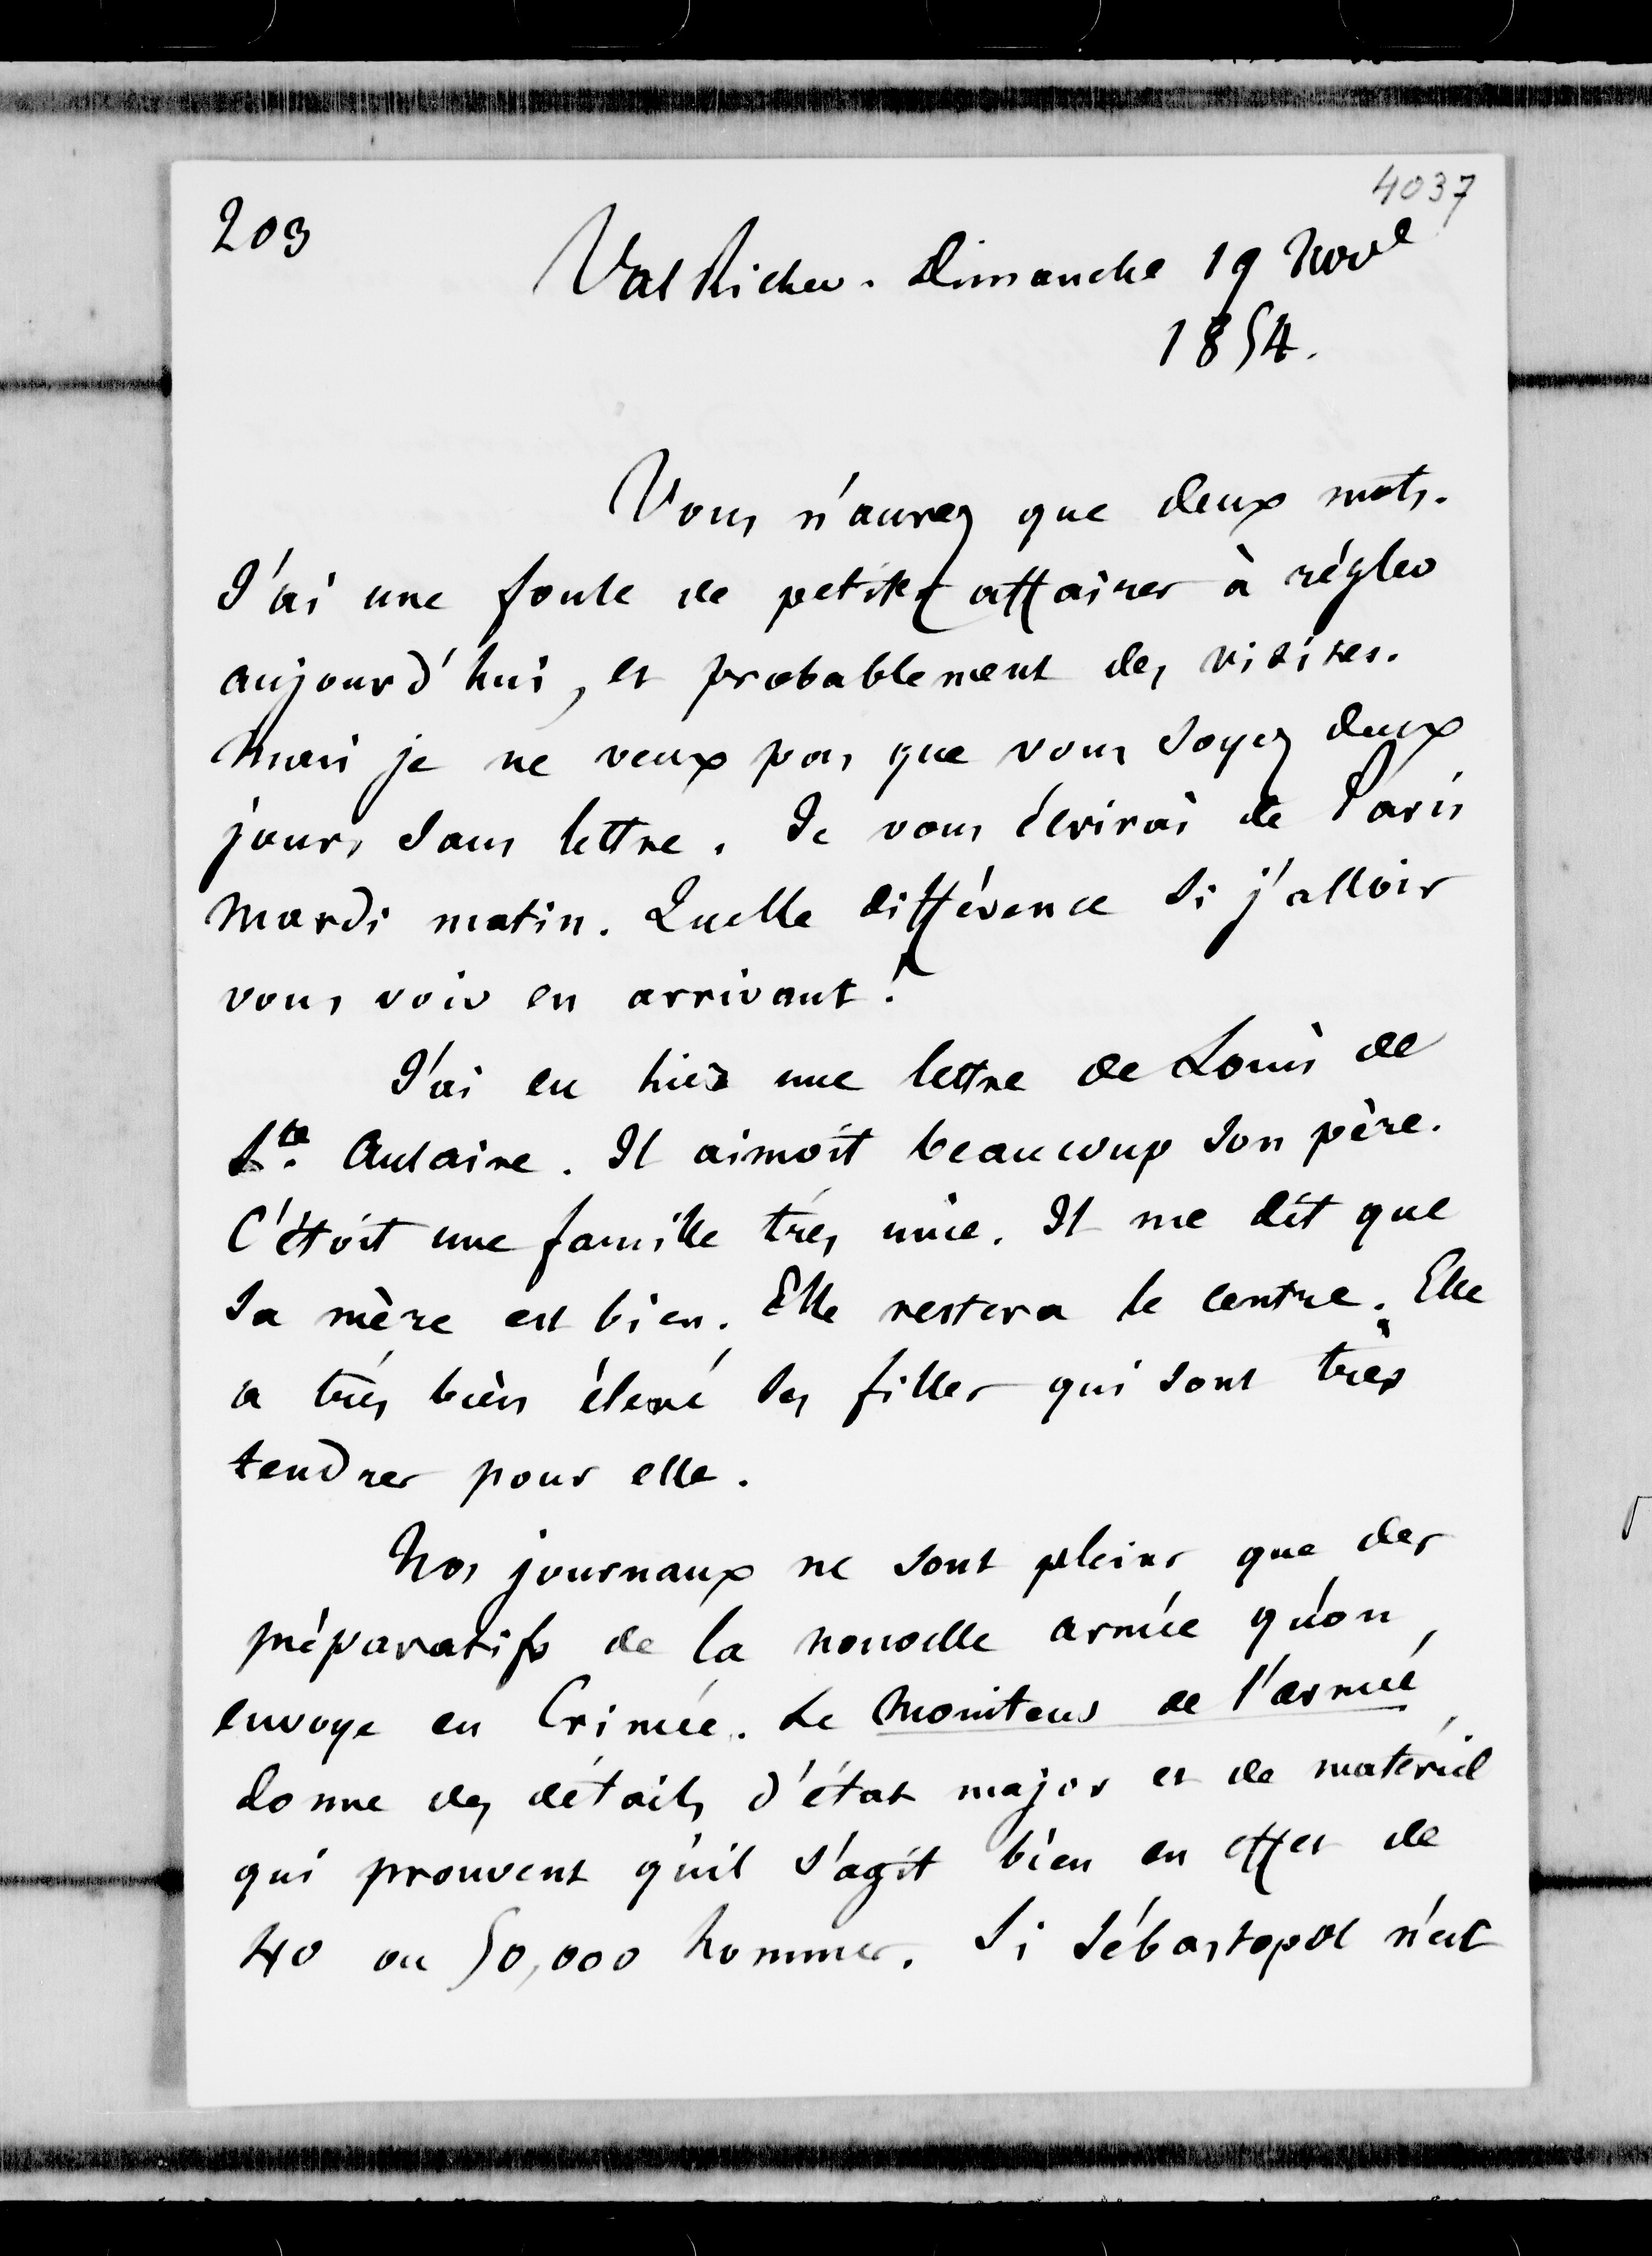 4037
203
Val Richer. Dimanche 19 Nov.e
1854.
Vous n'aurez que deux mots.
J'ai une foule de petites affaires à régler
aujourd'hui, et probablement des visites.
Mais je ne veux pas que vous soyez deux
jours sans lettre. Je vous écrirai de Paris
Mardi matin. Quelle différence si j'allois
vous voir en arrivant !
J'ai eu hier une lettre de Louis de
Ste. Aulaire. Il aimoit beaucoup son père.
C'étoit une famille très unie. Il me dit que
sa mère est bien. Elle restera le centre. Elle
a très bien élevé ses filles qui sont très
tendres pour elle.
Nos journaux ne sont pleins que des
préparatifs de la nouvelle armée qu'on
envoye en Crimée. Le Moniteur de l'armée
donne des détails d'état major et de matériel
qui prouvent qu'il s'agit bien en effet de
40 ou 50,000 hommes. Si Sébastopol n'est